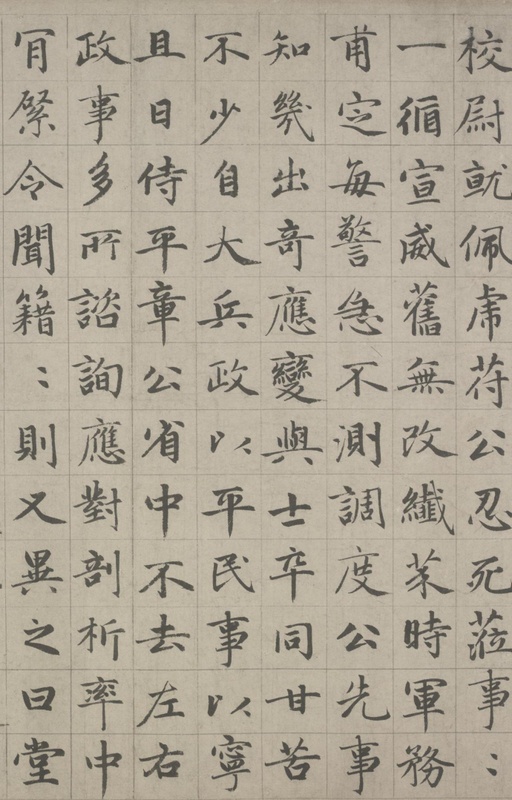 校尉就佩虎苻公忍死蒞事〻
一循宣威舊無改纖萊時軍務
甫定每警急不測調度公先事
知幾出奇應變與士卒同甘苦
不少自大兵政以平民事以寧
且日侍平章公省中不去左右
政事多所諮詢應對剖析率中
肎綮令聞籍〻則又異之曰堂